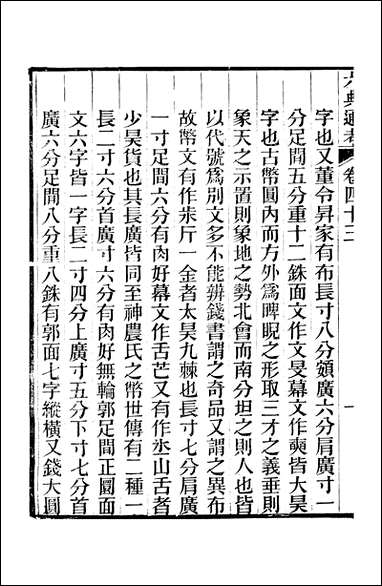 六典通考 卷四十三 一
字也又董令昇家有布長寸八分頟廣六分肩廣寸一
分足間五分重十二銖面文作文旻幕文作奭皆大昊
字也古幣圓內而方外為睥睨之形取三才之義垂則
象天之示置則象地之勢北會而南分坦之則人也皆
以代號爲別文多不能辨錢書謂之奇品又謂之異布
故幣文有作桒斤一金者太昊九棘也長寸七分肩廣
一寸足間六分有肉好幕文作舌芒又有作丞山舌者
少昊貨也其長廣皆同至神農氏之幣世傳有二種一
長二寸六分首廣寸六分有肉好無輪郭足間正圜面
文六字皆一字長二寸四分上廣寸五分下寸七分首
廣六分足間八分重八銖有郭面七字縱橫又錢大圓